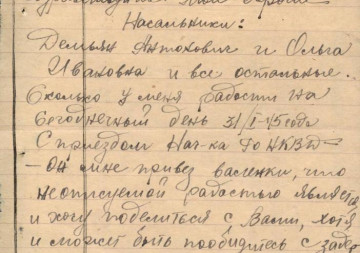 Насальники:
Демьян Антонович и Ольга
Ивановна и все остальные.
Сколько у меня радости на
сегоднечный день 31/I-45 года
С приездом Нач-ка ГО НКВД
- он мне привез валенки, что
неописуемой радостью является
и хочу поделиться с Вами, хотя
и может быть пообидитесь с